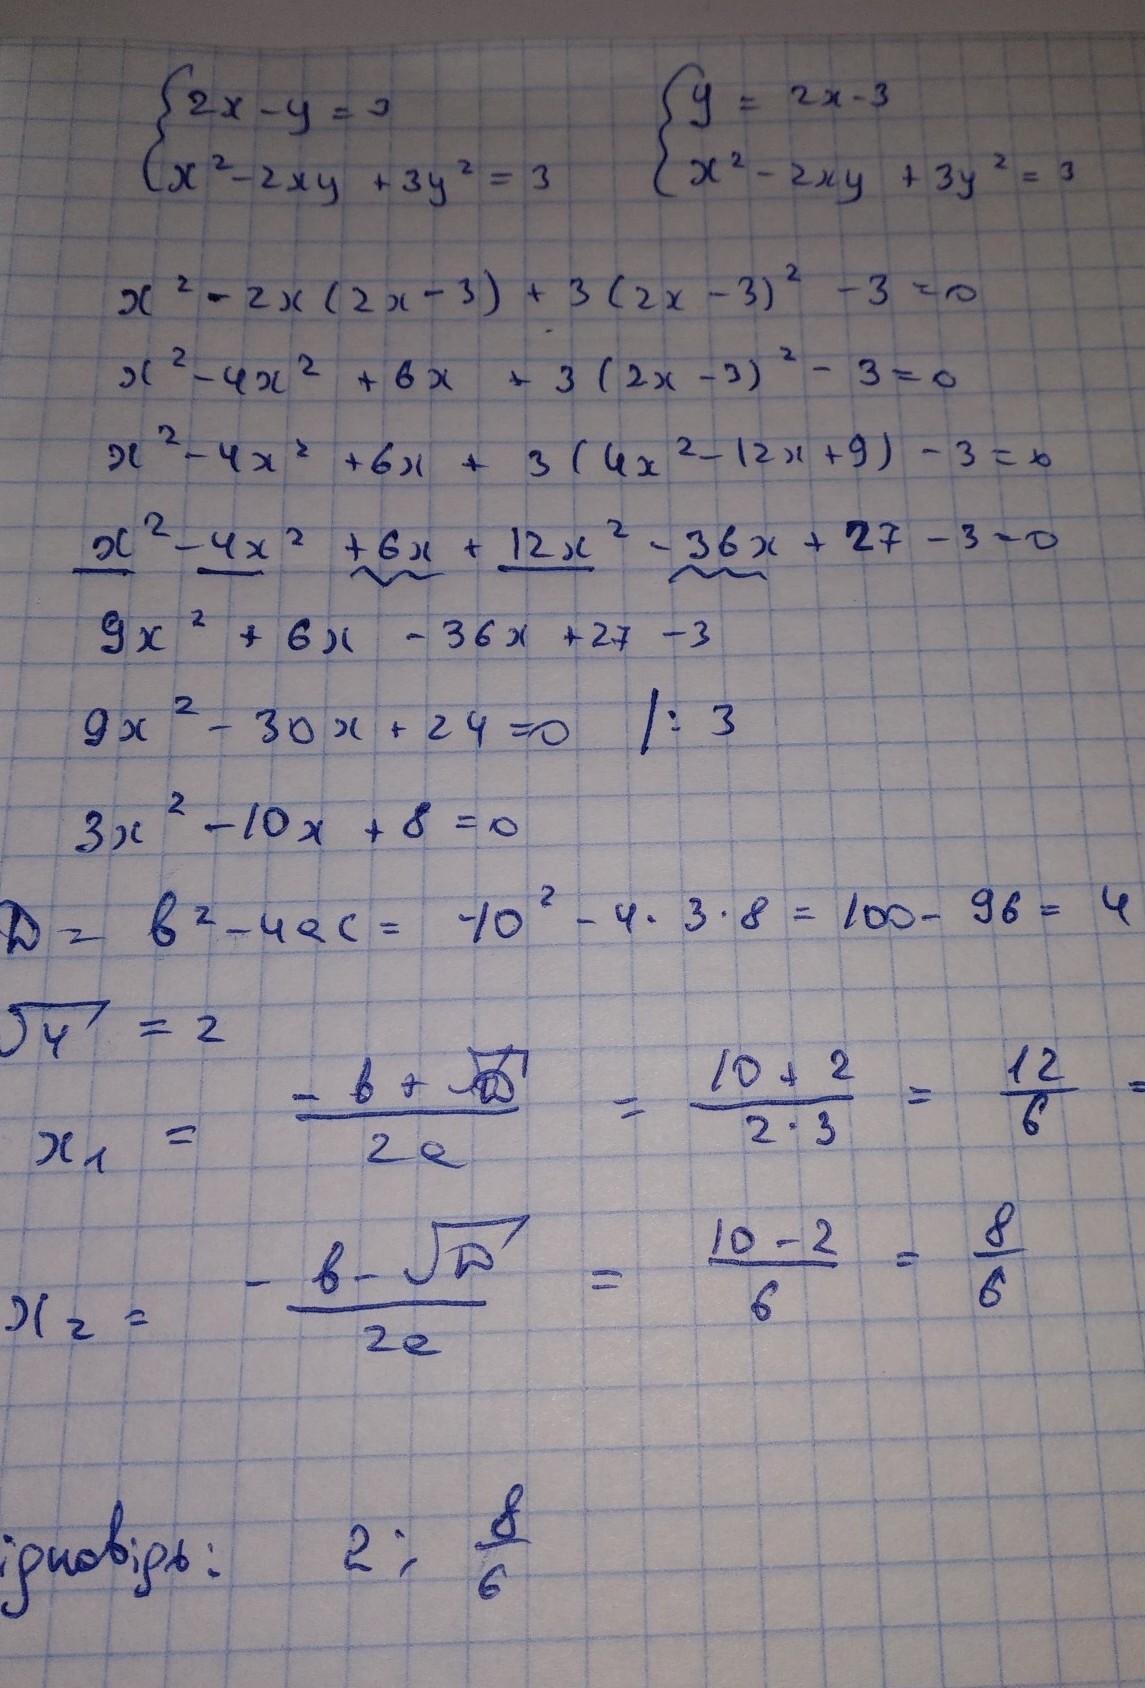 {2x - y = 3 {y = 2x - 3
{x² - 2xy + 3y² = 3 {x² - 2xy + 3y² = 3
x² - 2x(2x - 3) + 3(2x - 3)² - 3 = 0
x² - 4x² + 6x + 3(2x - 3)² - 3 = 0
x² - 4x² + 6x + 3(4x² - 12x + 9) - 3 = 0
x² - 4x² + 6x + 12x² - 36x + 27 - 3 = 0
9x² + 6x - 36x + 27 - 3
9x² - 30x + 24 = 0 /: 3
3x² - 10x + 8 = 0
D = b² - 4ac = -10² - 4·3·8 = 100 - 96 = 4
√4 = 2
x₁ = (-b + √D)/(2a) = (10 + 2)/(2·3) = 12/6 =
x₂ = (-b - √D)/(2a) = (10 - 2)/6 = 8/6
ідповідь: 2; 8/6